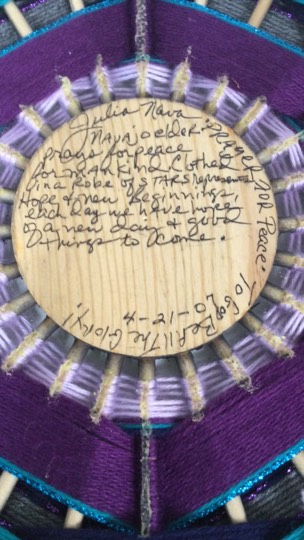 Julia Nava
Navajo elder
prays for peace
for mankind clothed
in a Robe of STARS represents
Hope & new Beginnings
each day we have hope
of a new day & good
things to come.
PRAYER FOR Peace.
To God Be All The Glory!
4-21-07